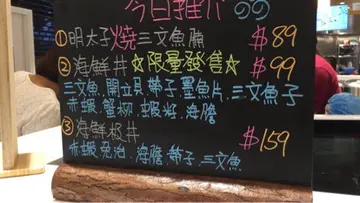 今日推介
① 明太子燒三文魚腩 $89
② 海鮮丼 ☆限量發售☆ $99
三文魚、開立貝、帶子、墨魚片、三文魚子
赤蝦、蟹柳、蝦
③ 海鮮极丼 $159
赤蝦、海膽、帶子、三文魚